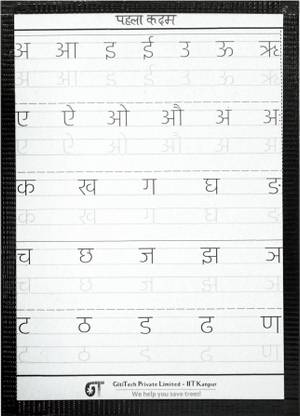 पहला कदम
अ आ इ ई उ ऊ ऋ
अ आ इ ई उ ऊ ऋ
ए ऐ ओ औ अं अः
ए ऐ ओ औ अं अः
क ख ग घ ङ
क ख ग घ ङ
च छ ज झ ञ
च छ ज झ ञ
ट ठ ड ढ ण
ट ठ ड ढ ण
GT GitiTech Private Limited - IIT Kanpur
We help you save trees!